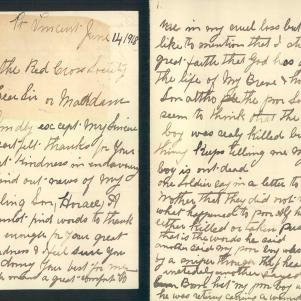 Pt Vincent
June 14/1918
the Red Cross Society
Dear Sir or Maddame
Kindly except My Sincere
heartfelt thanks for Your
Kindness in endeavouring
find out news of My
darling Son, Horace, I
cannot find words to thank
enough for your great
Kindness I feel sure You
doing Your best for me
a great comfort to
Me in my cruel loss but
like to mention that I
great faith that God has
the life of My Brave &
Son altho the
seem to think that the
boy was realy killed
thing keeps telling me
boy is not dead
one Soldier say in a letter to
Mother that they did not
what happened to poor
either killed or taken
that is the words he
another said My poor boy was
by a sniper through the
another says
but my poor boy
he was